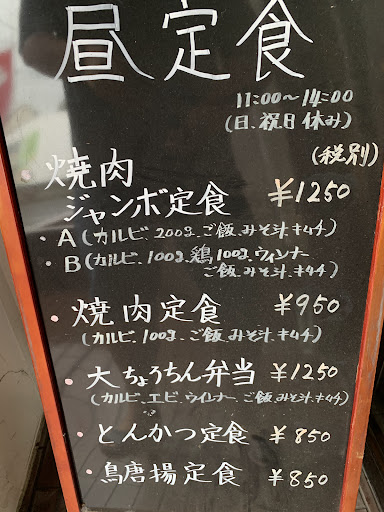 昼定食
11:00～14:00
(日、祝日休み)
(税別)
・焼肉
ジャンボ定食 ¥1250
・A(カルビ、200g、ご飯、みそ汁、キムチ)
・B(カルビ、100g、鶏100g、ウィンナー
ご飯、みそ汁、キムチ)
・焼肉定食 ¥950
(カルビ、100g、ご飯、みそ汁、キムチ)
・大ちょうちん弁当 ¥1250
(カルビ、エビ、ウィンナー、ご飯、みそ汁、キムチ)
・とんかつ定食 ¥850
・鳥唐揚定食 ¥850